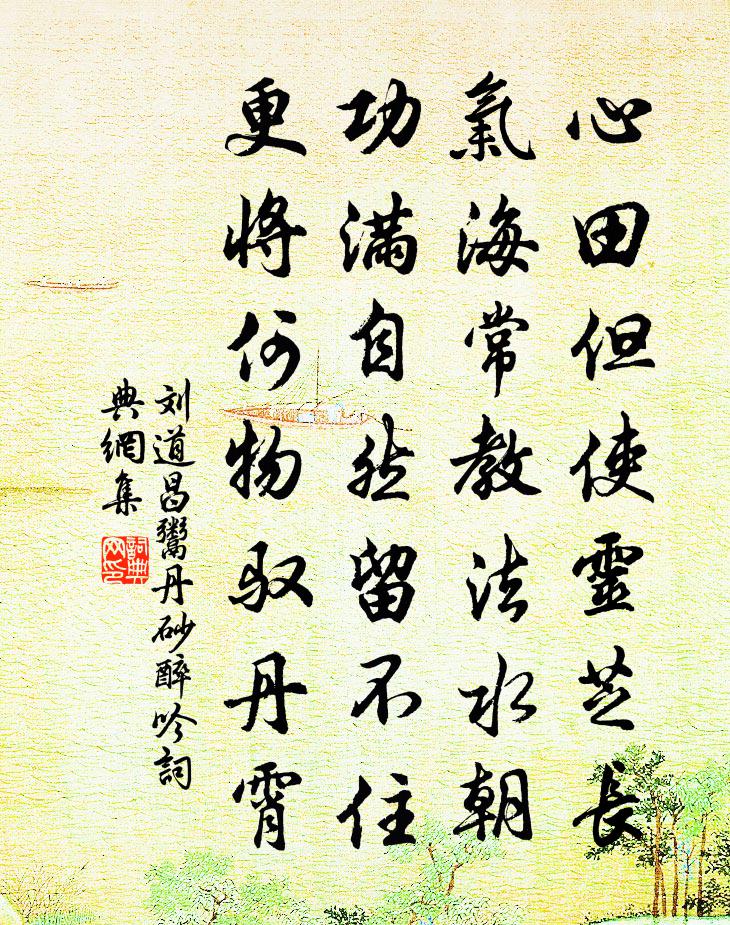 心田但使靈芝長
氣海常教法水朝
功滿自然留不住
更將何物馭丹霄
刘道昌鬻丹砂醉吟詞
典網集
詞典
网印